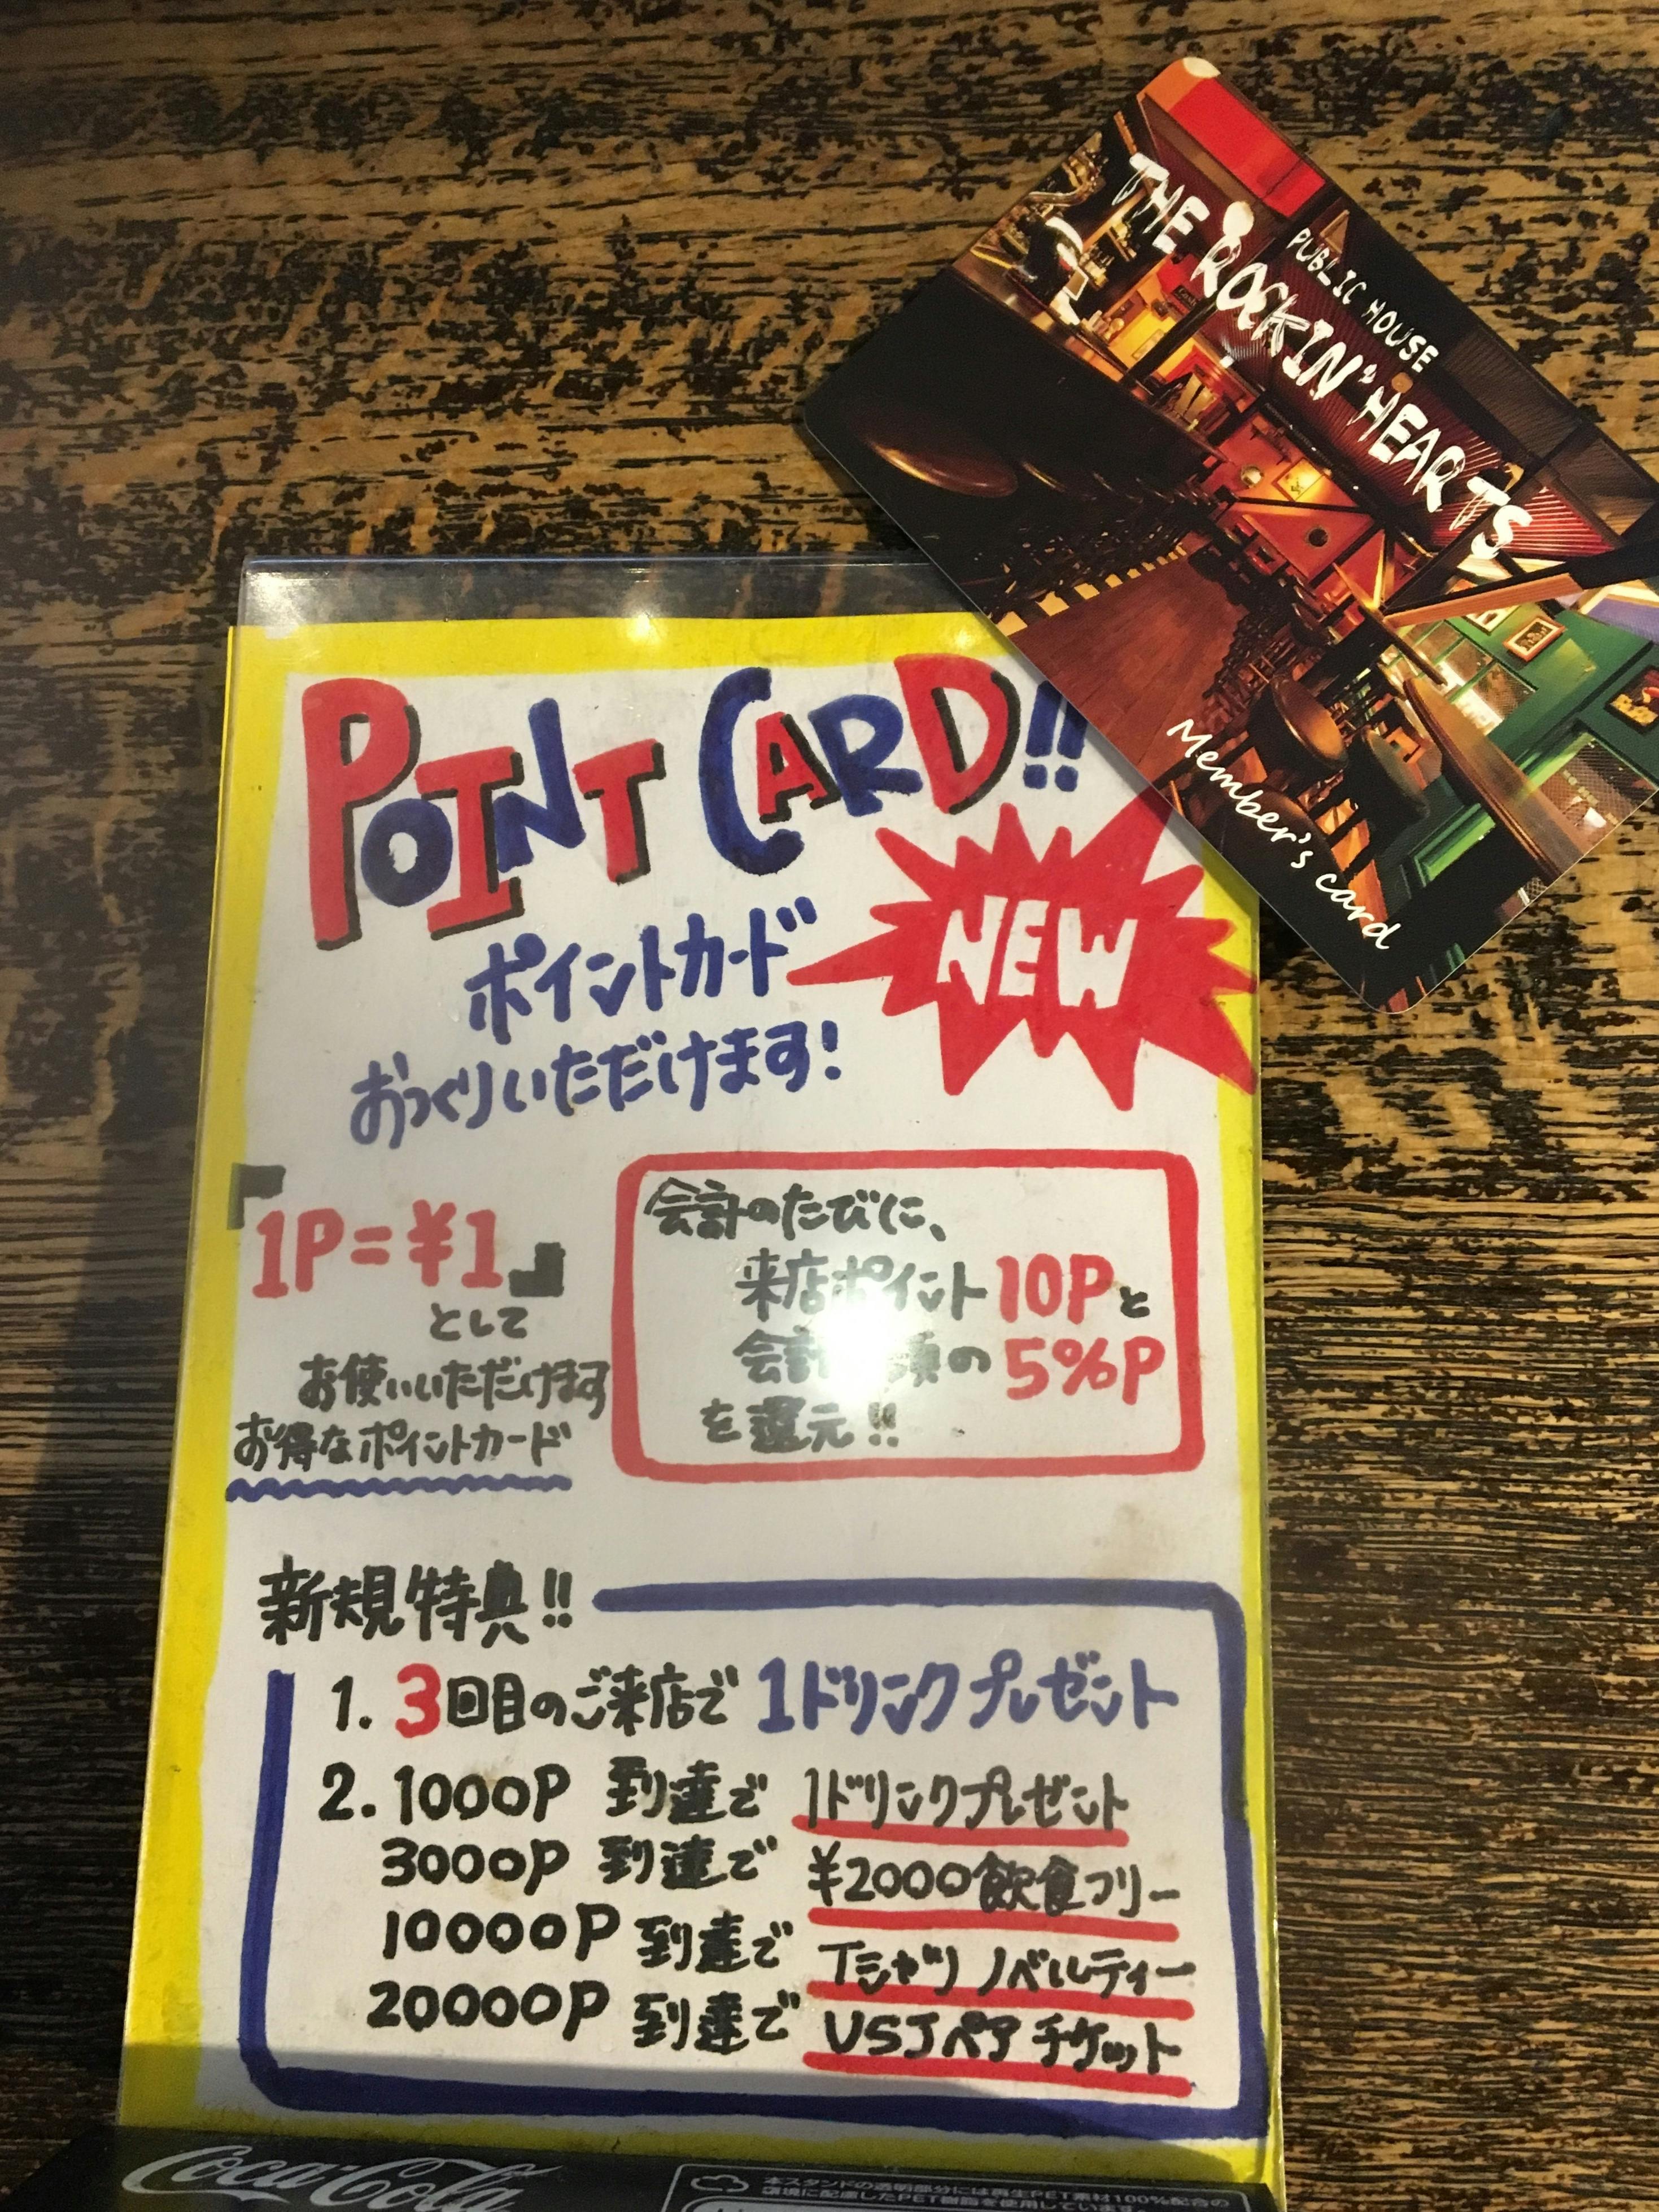 PUBLIC HOUSE
THE ROCKIN' HEARTS
Member's card
POINT CARD!!
NEW
ポイントカード
おつくりいただけます!
「1P=¥1」
として
お使いいただけます
お得なポイントカード
会計のたびに、
来店ポイント10Pと
会計 の5%P
を還元!!
新規特典!!
1. 3回目のご来店で 1ドリンクプレゼント
2. 1000P 到達で 1ドリンクプレゼント
3000P 到達で ¥2000飲食フリー
10000P 到達で Tシャツ ノベルティー
20000P 到達で USJペア チケット
Coca-Cola
本スタンドの透明部分には再生PET素材100%配合の
環境に配慮したPET樹脂を使用しています。